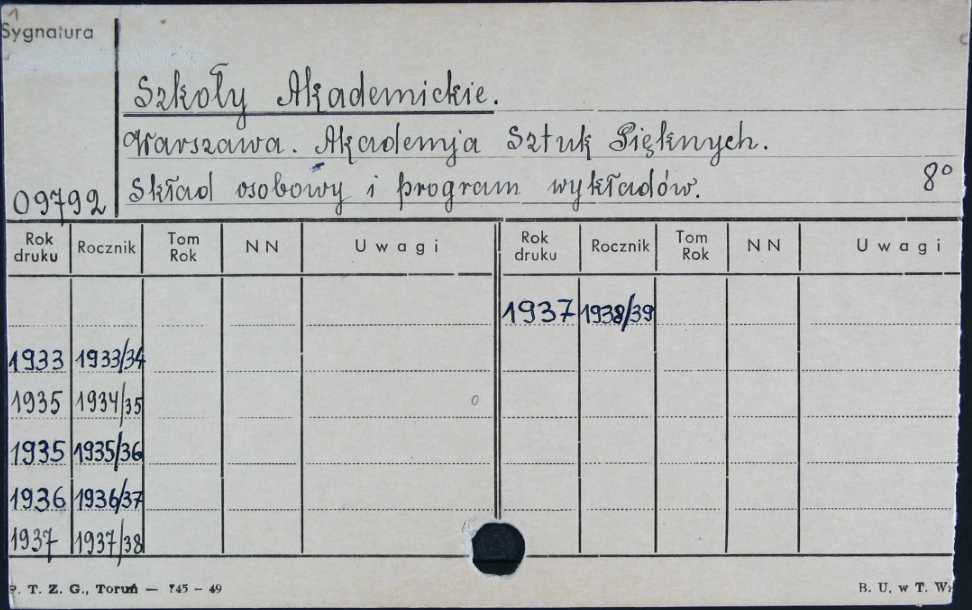 Sygnatura
09792
Szkoły Akademickie.
Warszawa. Akademja Sztuk Pięknych.
Skład osobowy i program wykładów. 8°
Rok druku Rocznik Tom Rok NN Uwagi Rok druku Rocznik Tom Rok NN Uwagi
1937 1938/39
1933 1933/34
1935 1934/35
1935 1935/36
1936 1936/37
1937 1937/38
P. T. Z. G., Toruń — 745 - 49 B. U. w T.